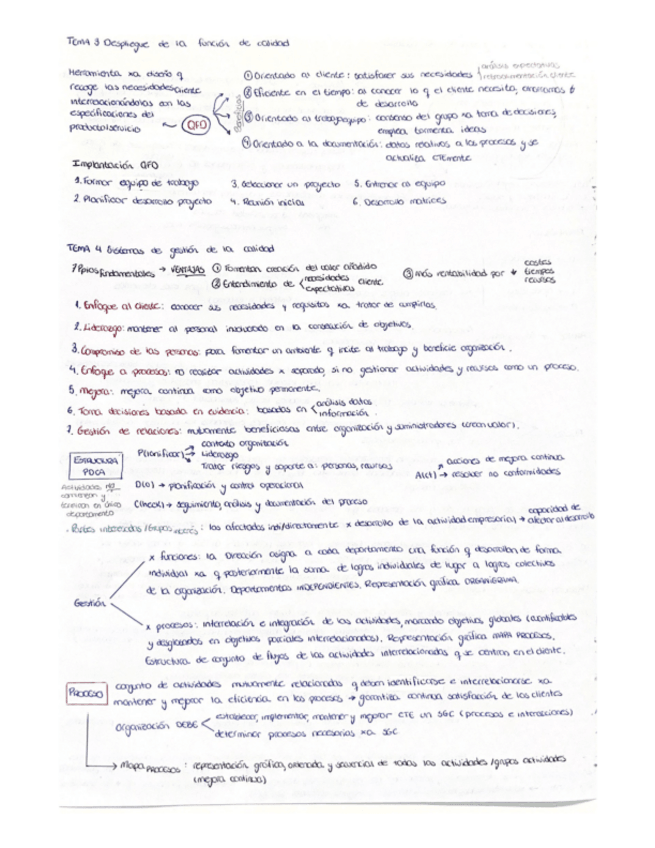 TEMA 3 Despliegue de la función de calidad
Herramienta xa diseño q
recoge las necesidades cliente
interrelacionándolas con las
especificaciones del
producto/servicio
QFD
Beneficios
① Orientado al cliente: satisfacer sus necesidades
análisis expectativas
retroalimentación cliente
② Eficiente en el tiempo: al conocer lo q el cliente necesita, ahorramos t
de desarrollo
③ Orientado al trabajo equipo: consenso del grupo xa toma de decisiones,
emplea tormenta ideas
④ Orientado a la documentación: datos relativos a los procesos y se
actualiza CTEmente
Implantación QFD
1. Formar equipo de trabajo
3. Seleccionar un proyecto
5. Entrenar al equipo
2. Planificar desarrollo proyecto
4. Reunión inicial
6. Desarrollo matrices
TEMA 4 Sistemas de gestión de la calidad
7 Ppios fundamentales → VENTAJAS
① Fomentan creación del valor añadido
② Entendimiento de
necesidades
expectativas
cliente
③ más rentabilidad por ↓
costes
tiempos
recursos
1. Enfoque al cliente: conocer sus necesidades y requisitos xa tratar de cumplirlos.
2. Liderazgo: mantener al personal involucrado en la consecución de objetivos.
3. Compromiso de las personas: para fomentar un ambiente q incite al trabajo y beneficie organización.
4. Enfoque a procesos: no realizar actividades x separado, si no gestionar actividades y recursos como un proceso.
5. Mejora: mejora continua como objetivo permanente.
6. Toma decisiones basada en evidencia: basadas en
análisis datos
información.
7. Gestión de relaciones: mutuamente beneficiosas entre organización y suministradores (crean valor).
ESTRUCTURA
PDCA
P(lanificar)
contexto organización
Liderazgo
Tratar riesgos y soporte a: personas, recursos
D(o) → planificación y control operacional
C(heck) → seguimiento, análisis y documentación del proceso
A(ct)
acciones de mejora continua
resolver no conformidades
Actividades no
comienzan y
terminan en único
departamento
. Partes interesadas/Grupos interés: los afectados ind/directamente x desarrollo de la actividad empresarial →
capacidad de
afectar al desarrollo
Gestión
x funciones: la Dirección asigna a cada departamento una función q desarrollan de forma
individual xa q posteriormente la suma de logros individuales de lugar a logros colectivos
de la organización. Departamentos INDEPENDIENTES. Representación gráfica ORGANIGRAMA.
x procesos: interrelación e integración de las actividades, marcando objetivos globales (cuantificables
y desglosados en objetivos parciales interrelacionados). Representación gráfica MAPA PROCESOS.
Estructura de conjunto de flujos de las actividades interrelacionadas q se centran en el cliente.
PROCESO
conjunto de actividades mutuamente relacionadas q deben identificarse e interrelacionarse xa
mantener y mejorar la eficiencia en los procesos → garantiza continua satisfacción de los clientes
Organización DEBE
establecer, implementar, mantener y mejorar CTE un SGC (procesos e interacciones)
determinar procesos necesarios xa SGC
Mapa PROCESOS: representación gráfica, ordenada, y secuencial de todas las actividades/grupos actividades
(mejora continua)